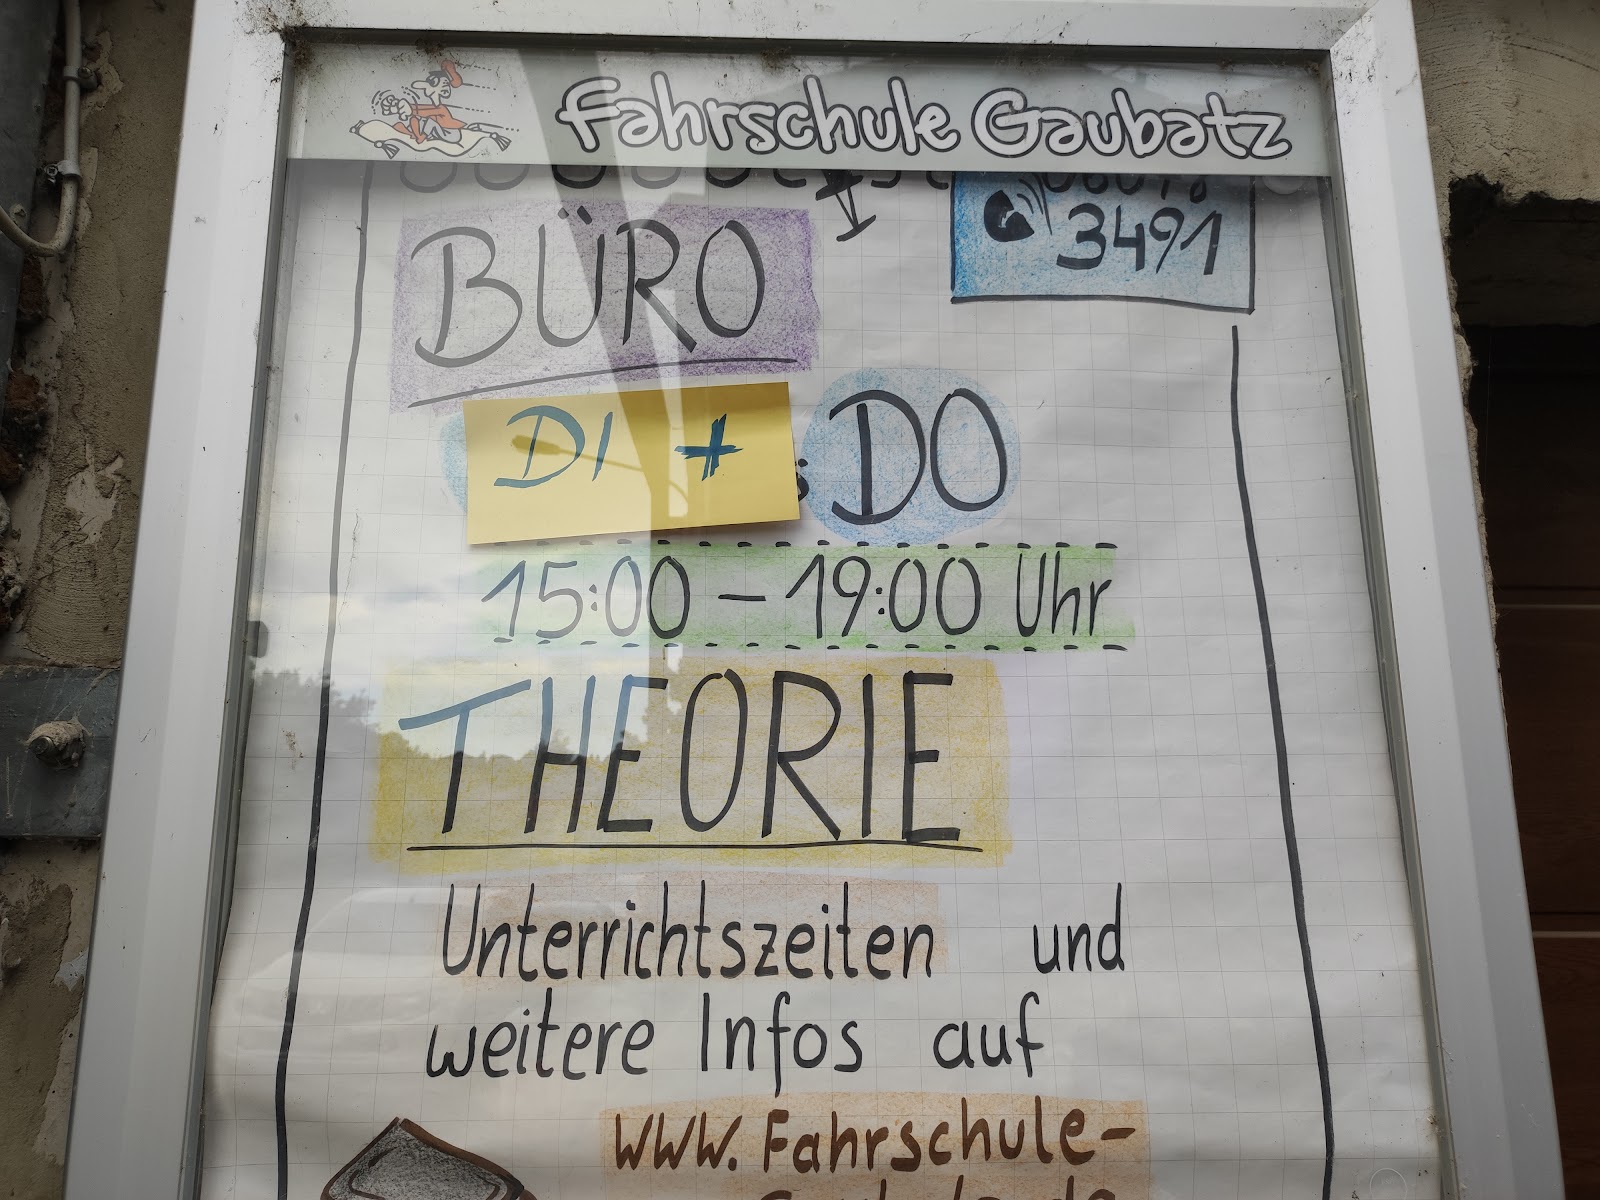 Fahrschule Gaubatz
3491
BÜRO
DI + DO
15:00 – 19:00 Uhr
THEORIE
Unterrichtszeiten und
weitere Infos auf
www.Fahrschule-